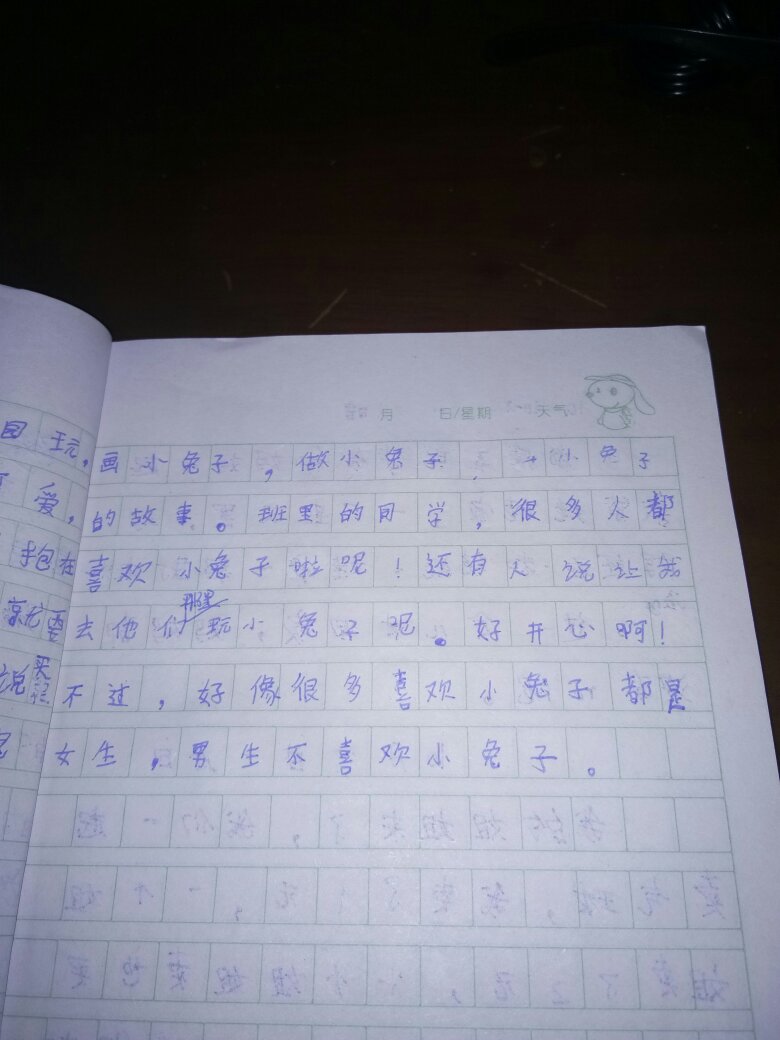 月 日/星期 天气
园玩，
爱，
抱在
就要
说买
画小兔子，做小兔子，小兔子
的故事。班里的同学，很多人都
喜欢小兔子啦呢！还有人说让我
去他们那里玩小兔子呢。好开心啊！
不过，好像很多喜欢小兔子都是
女生，男生不喜欢小兔子。